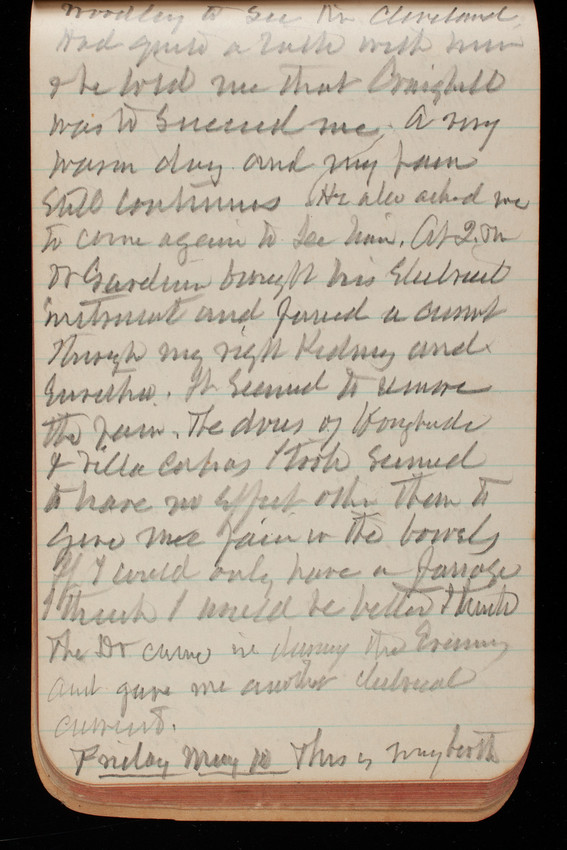 Woodley to see Mr Cleveland.
Had quite a talk with him
& he told me that Craighill
was to succeed me. A very
warm day and my pain
still continues He also asked me
to come again to see him. At 2. Pm
Dr Gardiner brought his Electrical
instrument and passed a current
through my right Kidney and
Eurethra. It seemed to remove
the pain. The doses of
& I took seemed
to have no effect other than to
give me pain in the bowels
If I could only have a passage
I think I would be better I think
the Dr came in during the Evening
and gave me another electrical
current.
Friday May 10 This is my birth